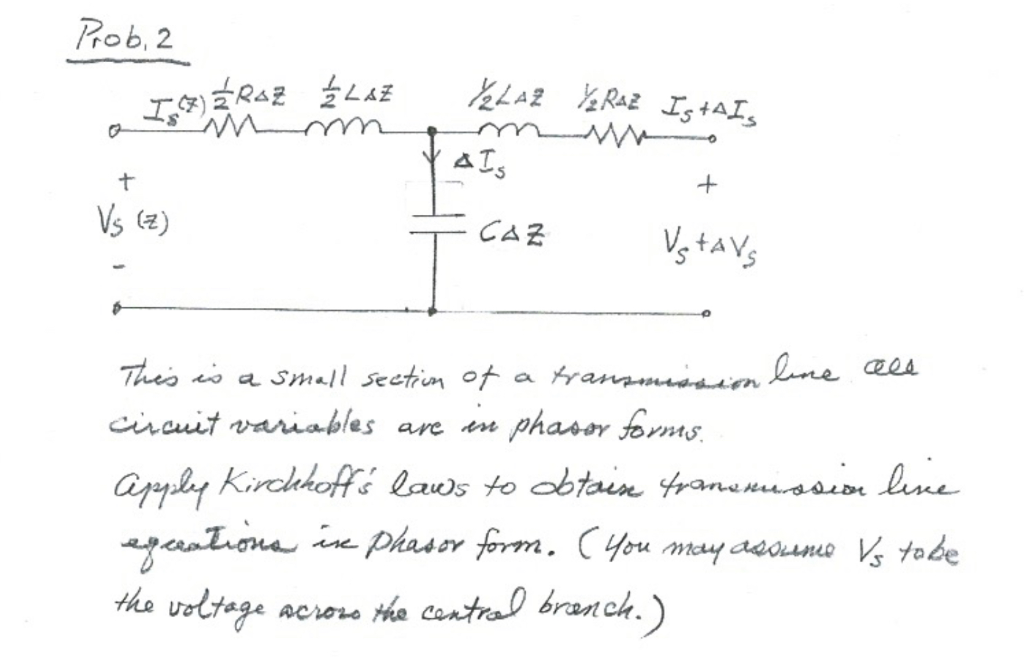 Prob. 2
I_s(z) ½RΔZ ½LΔZ ½LΔZ ½RΔZ I_s+ΔI_s
ΔI_s
+ +
V_s (z) CΔZ V_s+ΔV_s
-
This is a small section of a transmission line all
circuit variables are in phasor forms.
Apply Kirchhoff's laws to obtain transmission line
equations in phasor form. (You may assume V_s to be
the voltage across the central branch.)